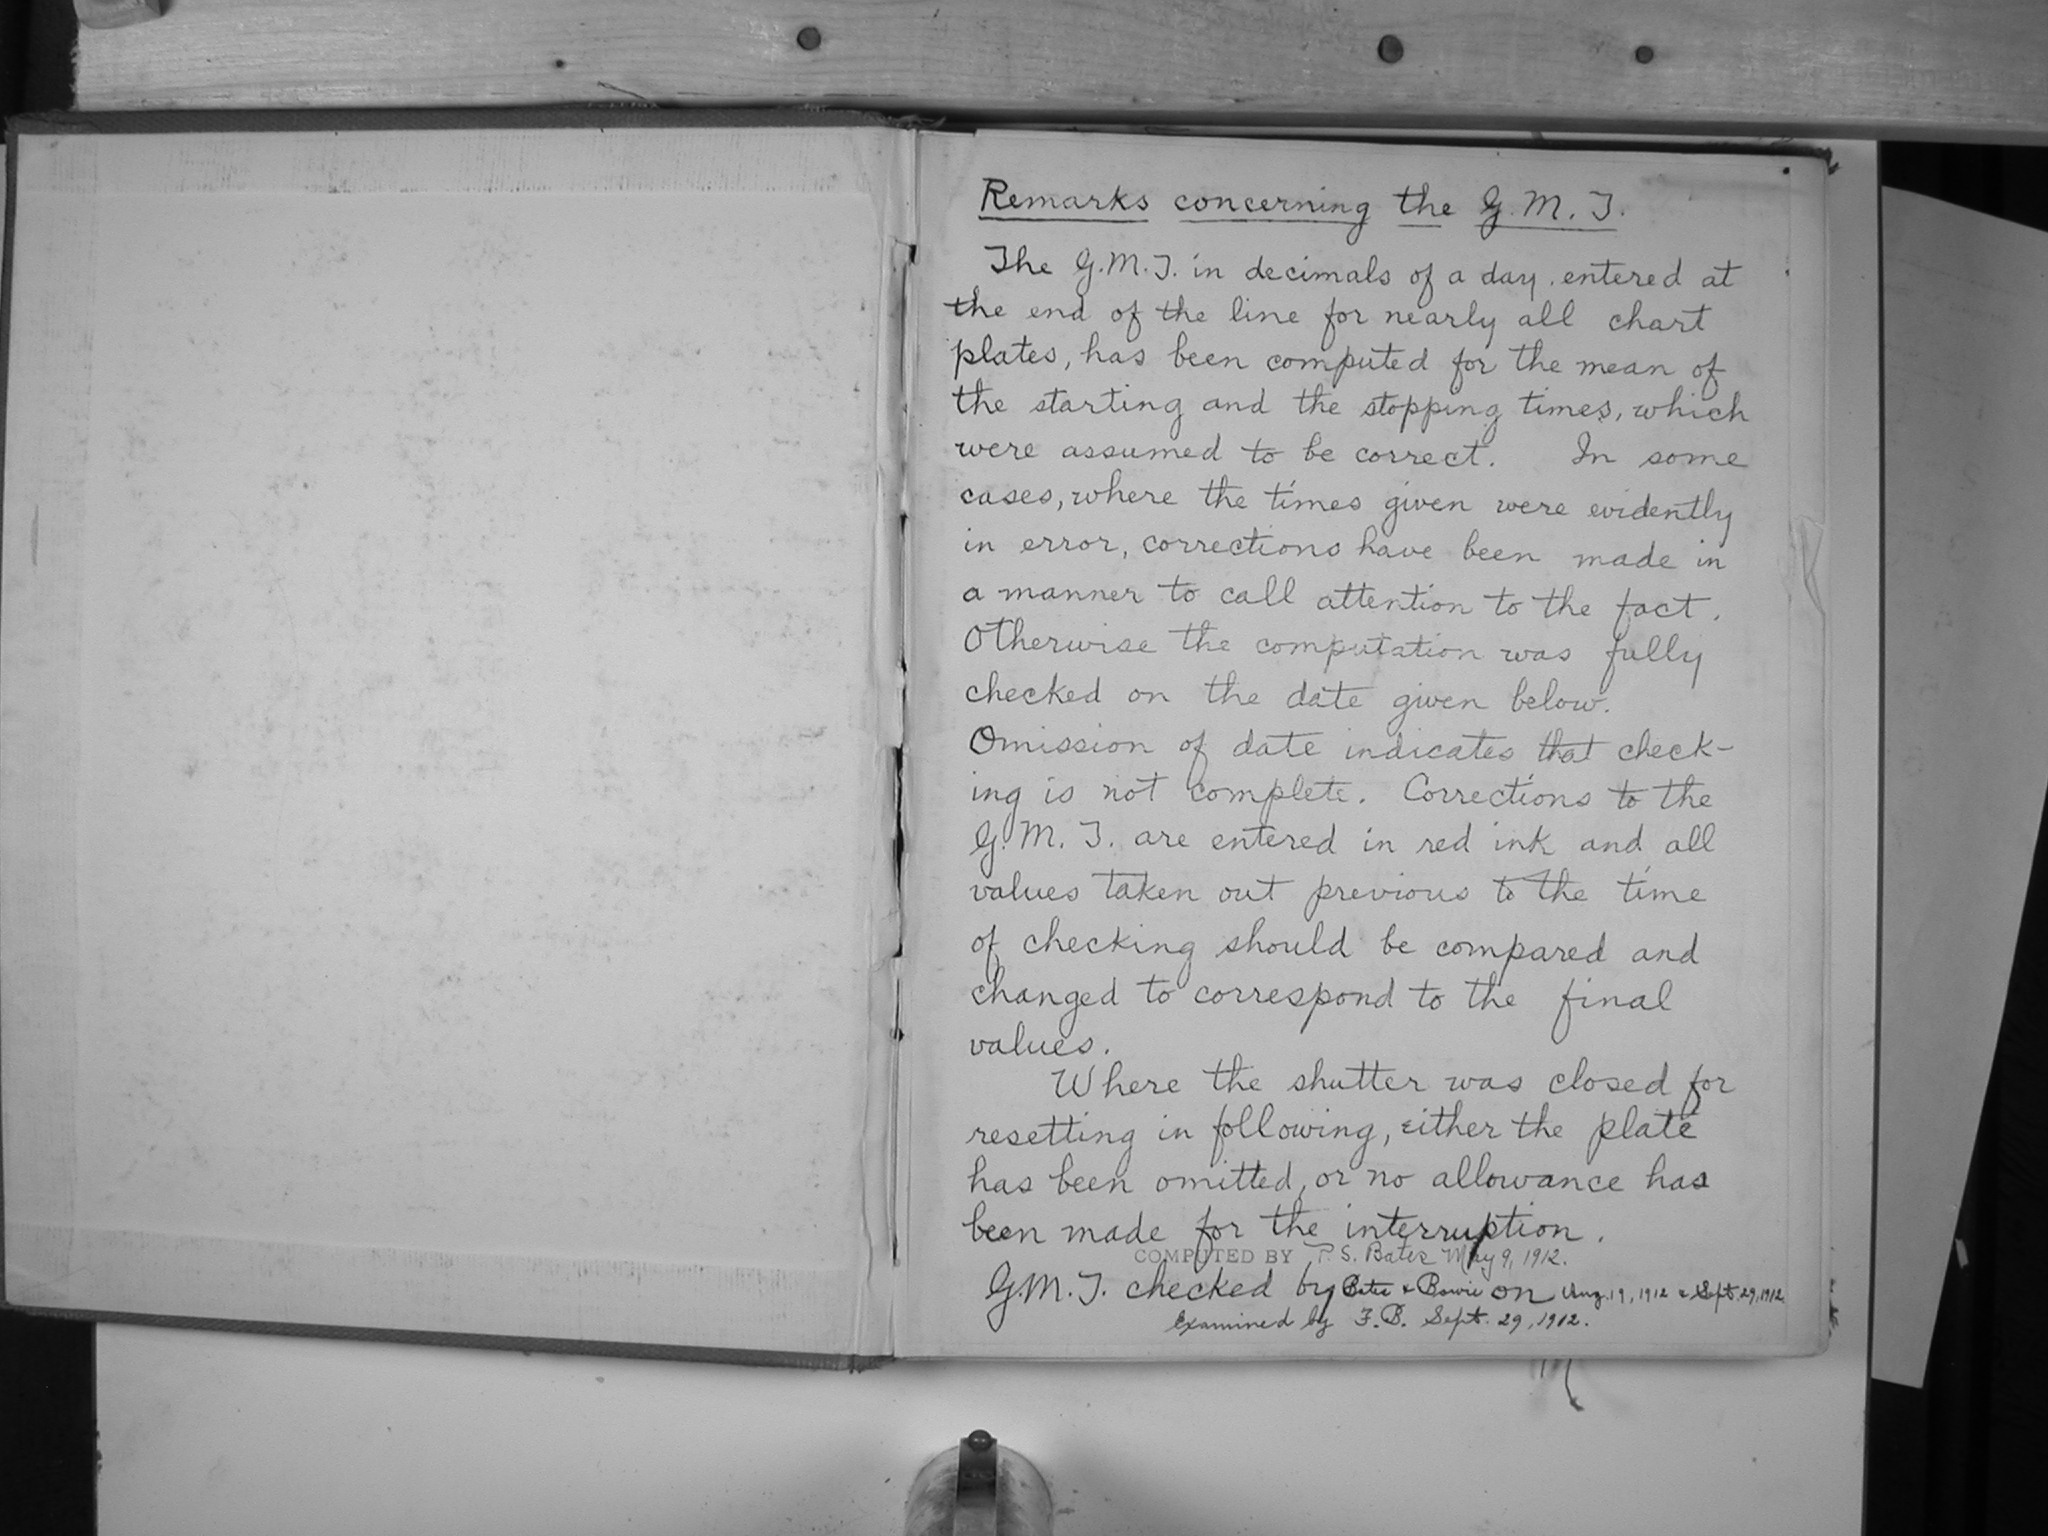 Remarks concerning the G.M.T.
The G.M.T. in decimals of a day, entered at
the end of the line for nearly all chart
plates, has been computed for the mean of
the starting and the stopping times, which
were assumed to be correct. In some
cases, where the times given were evidently
in error, corrections have been made in
a manner to call attention to the fact.
Otherwise the computation was fully
checked on the date given below.
Omission of date indicates that check-
ing is not complete. Corrections to the
G.M.T. are entered in red ink and all
values taken out previous to the time
of checking should be compared and
changed to correspond to the final
values.
Where the shutter was closed for
resetting in following, either the plate
has been omitted, or no allowance has
been made for the interruption.
COMPUTED BY P. S. Bates May 9, 1912.
G.M.T. checked by Bates & Bowie on Aug. 19, 1912 & Sept. 29, 1912.
Examined by F.B. Sept. 29, 1912.